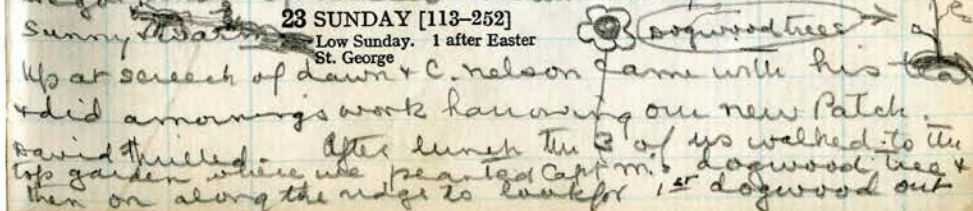 23 SUNDAY [113–252]
Low Sunday. 1 after Easter
St. George
Sunny & warm
Dogwood trees
Up at screech of dawn & C. Nelson came with his team
& did a mornings work harrowing our new Patch.
David thrilled. After lunch the 3 of us walked to the
top garden where we planted Capt M.s dogwood tree &
then on along the ridge to look for 1st dogwood out